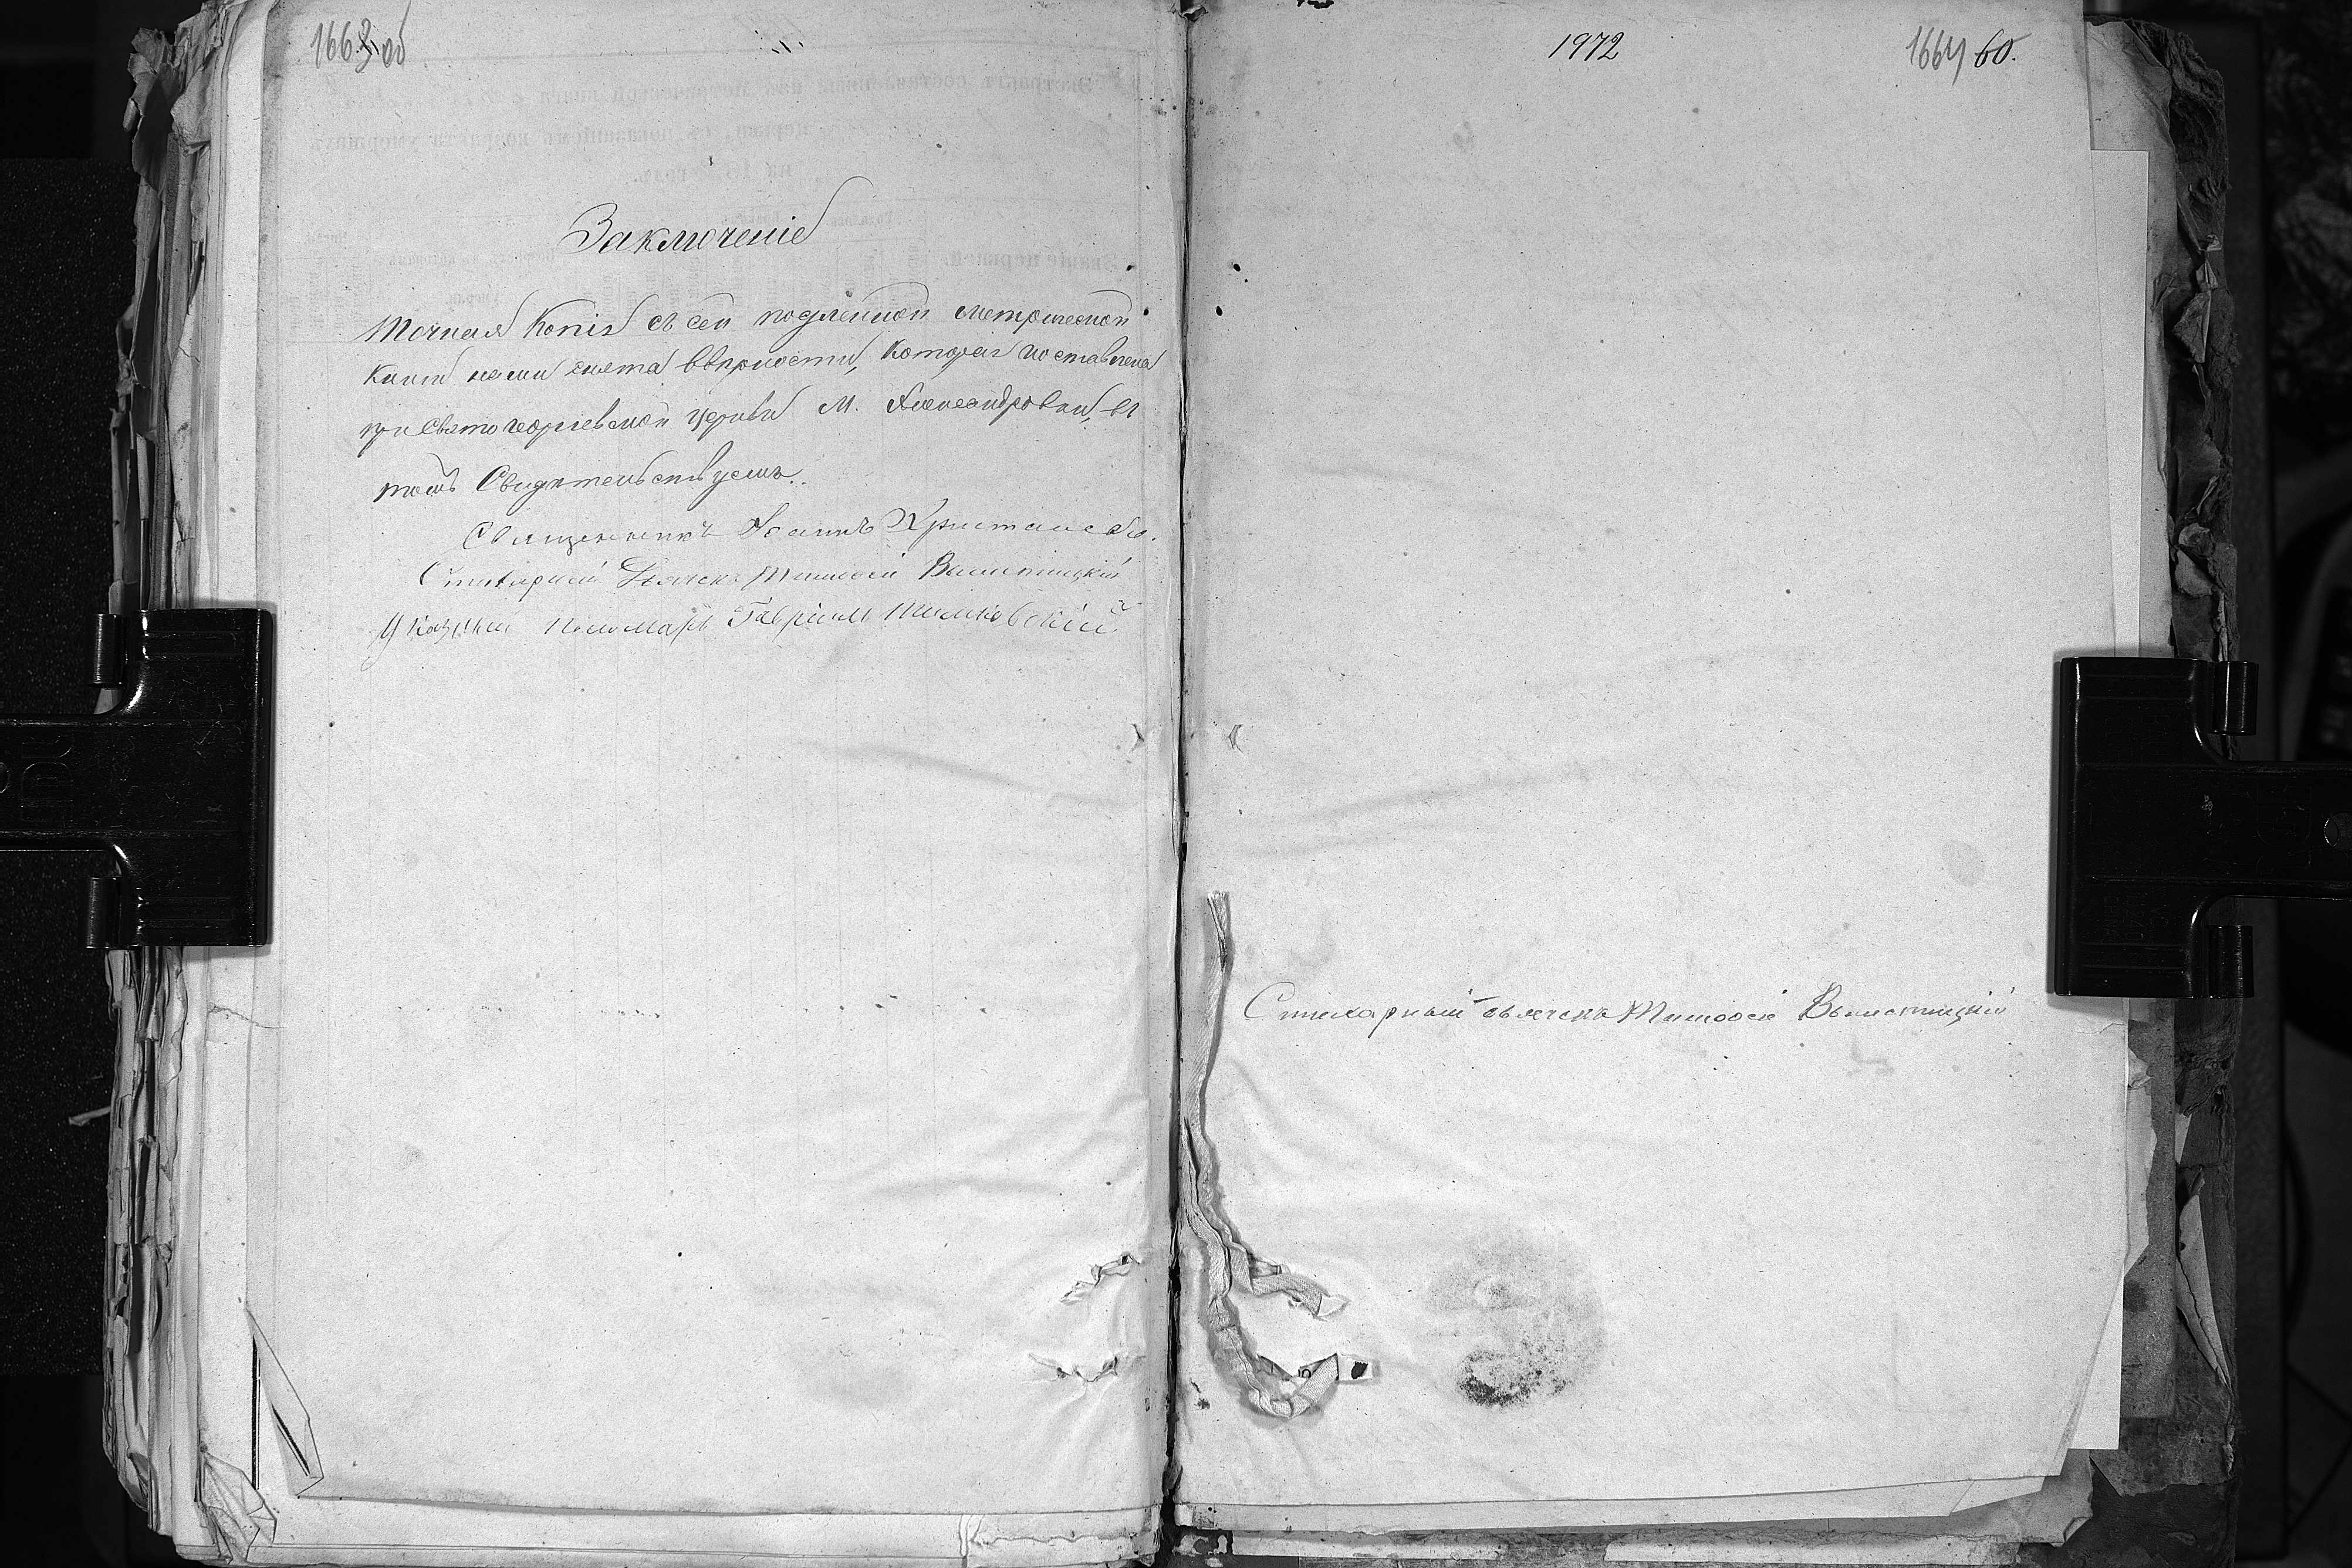 1663 об
Заключеніе
Точная Копія съ сей подлинной метрической
Книги нами снята въ вѣрности, Которая поставлена
при Свято Георгіевской церкви М. Александровки, въ
томъ Свидѣтельствуемъ.
Священникъ Іоаннъ
Стихарный Дьячекъ Тимофей
Указный Пономарь Гавріилъ
1972
1664 60.
Стихарный дьячекъ Тимофей